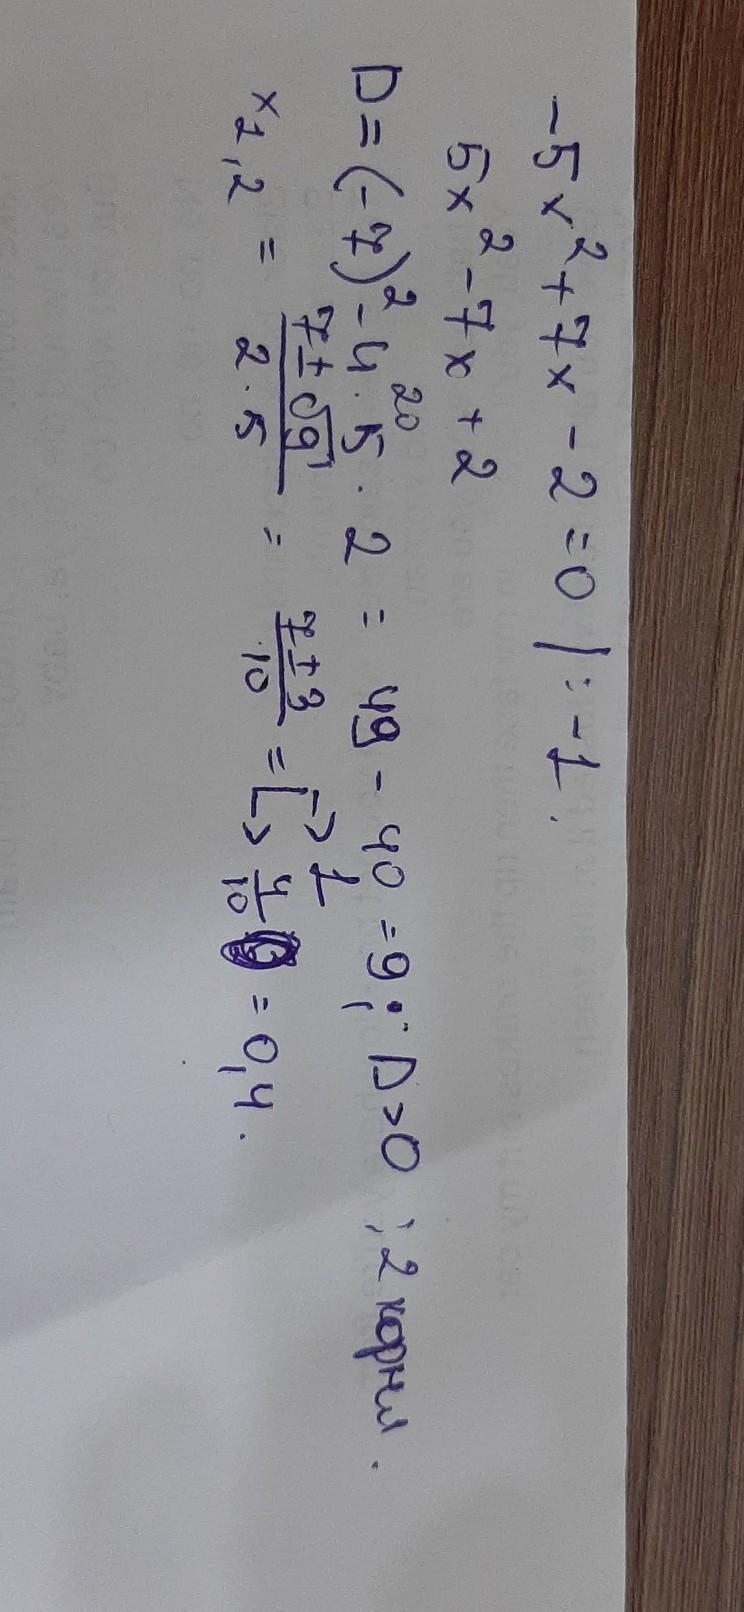 -5x²+7x-2=0 | : -1.
5x²-7x+2
D=(-7)²-4·5·2 = 49-40=9; D>0; 2 корни.
20
x1,2 = (7±√9)/(2·5) = (7±3)/10 = [-> 1
-> 4/10 = 0,4.